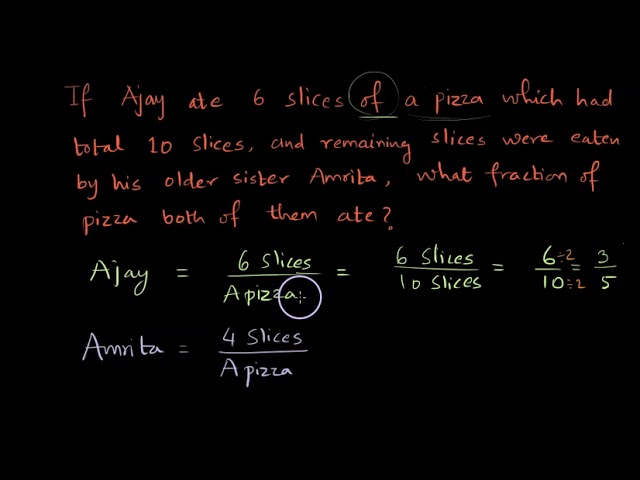 If Ajay ate 6 slices of a pizza which had
total 10 slices, and remaining slices were eaten
by his older sister Amrita, what fraction of
pizza both of them ate?
Ajay = 6 slices / A pizza = 6 slices / 10 slices = 6 ÷2 / 10 ÷2 = 3 / 5
Amrita = 4 slices / A pizza